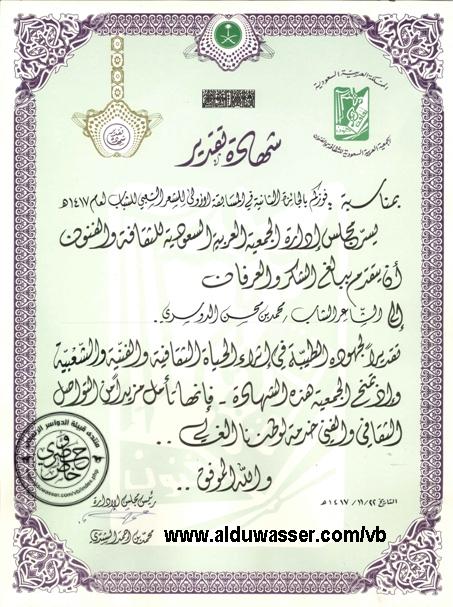 المملكة العربية السعودية
الجمعية العربية السعودية للثقافة والفنون
شهادة تقدير
شهادة تقدير
بمناسبة : فوزكم بالجائزة الثانية في المسابقة الأولى للشعر الشعبي للشباب لعام ١٤١٧هـ
يسر مجلس إدارة الجمعية العربية السعودية للثقافة والفنون
أن يتقدم ببالغ الشكر والعرفان
إلى الشاعر الشاب / محمد بن محسن الدوسري ..
تقديراً لجهوده الطيبة في إثراء الحياة الثقافية والفنية والشعبية
وإذ تمنح الجمعية هذه الشهادة - فإنها تأمل مزيداً من التواصل
الثقافي والفني خدمة لوطننا الغالي ..
والله الموفق ..
رئيس مجلس الإدارة
التاريخ ٢٢/ ١١/ ١٤١٧هـ
محمد بن أحمد الشدي
منتدى قبيلة الدواسر الرسمي
www.alduwasser.com/vb/index.php
www.alduwasser.com/vb